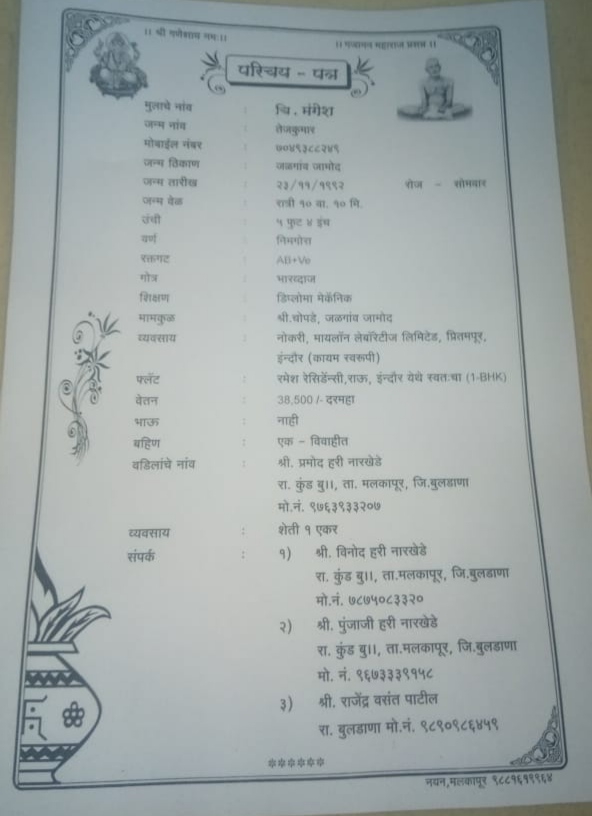 ।। श्री गणेशाय नमः।।
।। गजानन महाराज प्रसन्न ।।
परिचय - पत्र
मुलाचे नांव : चि . मंगेश
जन्म नांव : तेजकुमार
मोबाईल नंबर : ७०४९३८८२४९
जन्म ठिकाण : जळगांव जामोद
जन्म तारीख : २३/११/१९९२ रोज - सोमवार
जन्म वेळ : रात्री १० वा. १० मि.
उंची : ५ फुट ४ इंच
वर्ण : निमगोरा
रक्तगट : AB+Ve
गोत्र : भारव्दाज
शिक्षण : डिप्लोमा मेकॅनिक
मामकुळ : श्री.चोपडे, जळगांव जामोद
व्यवसाय : नोकरी, मायलॉन लेबॉरेटीज लिमिटेड, प्रितमपूर,
इंन्दौर (कायम स्वरूपी)
फ्लॅट : रमेश रेसिडेंन्सी,राऊ, इंन्दौर येथे स्वतःचा (1-BHK)
वेतन : 38,500/- दरमहा
भाऊ : नाही
बहिण : एक - विवाहीत
वडिलांचे नांव : श्री. प्रमोद हरी नारखेडे
रा. कुंड बु।।, ता. मलकापूर, जि.बुलडाणा
मो.नं. ९७६३९३३२०७
व्यवसाय : शेती १ एकर
संपर्क : १) श्री. विनोद हरी नारखेडे
रा. कुंड बु।।, ता.मलकापूर, जि.बुलडाणा
मो.नं. ७८७५०८३३२०
२) श्री. पुंजाजी हरी नारखेडे
रा. कुंड बु।।, ता.मलकापूर, जि.बुलडाणा
मो. नं. ९६७३३३९१५८
३) श्री. राजेंद्र वसंत पाटील
रा. बुलडाणा मो.नं. ९८९०९८६४५९
******
नयन,मलकापूर ९८८१६१९९६४